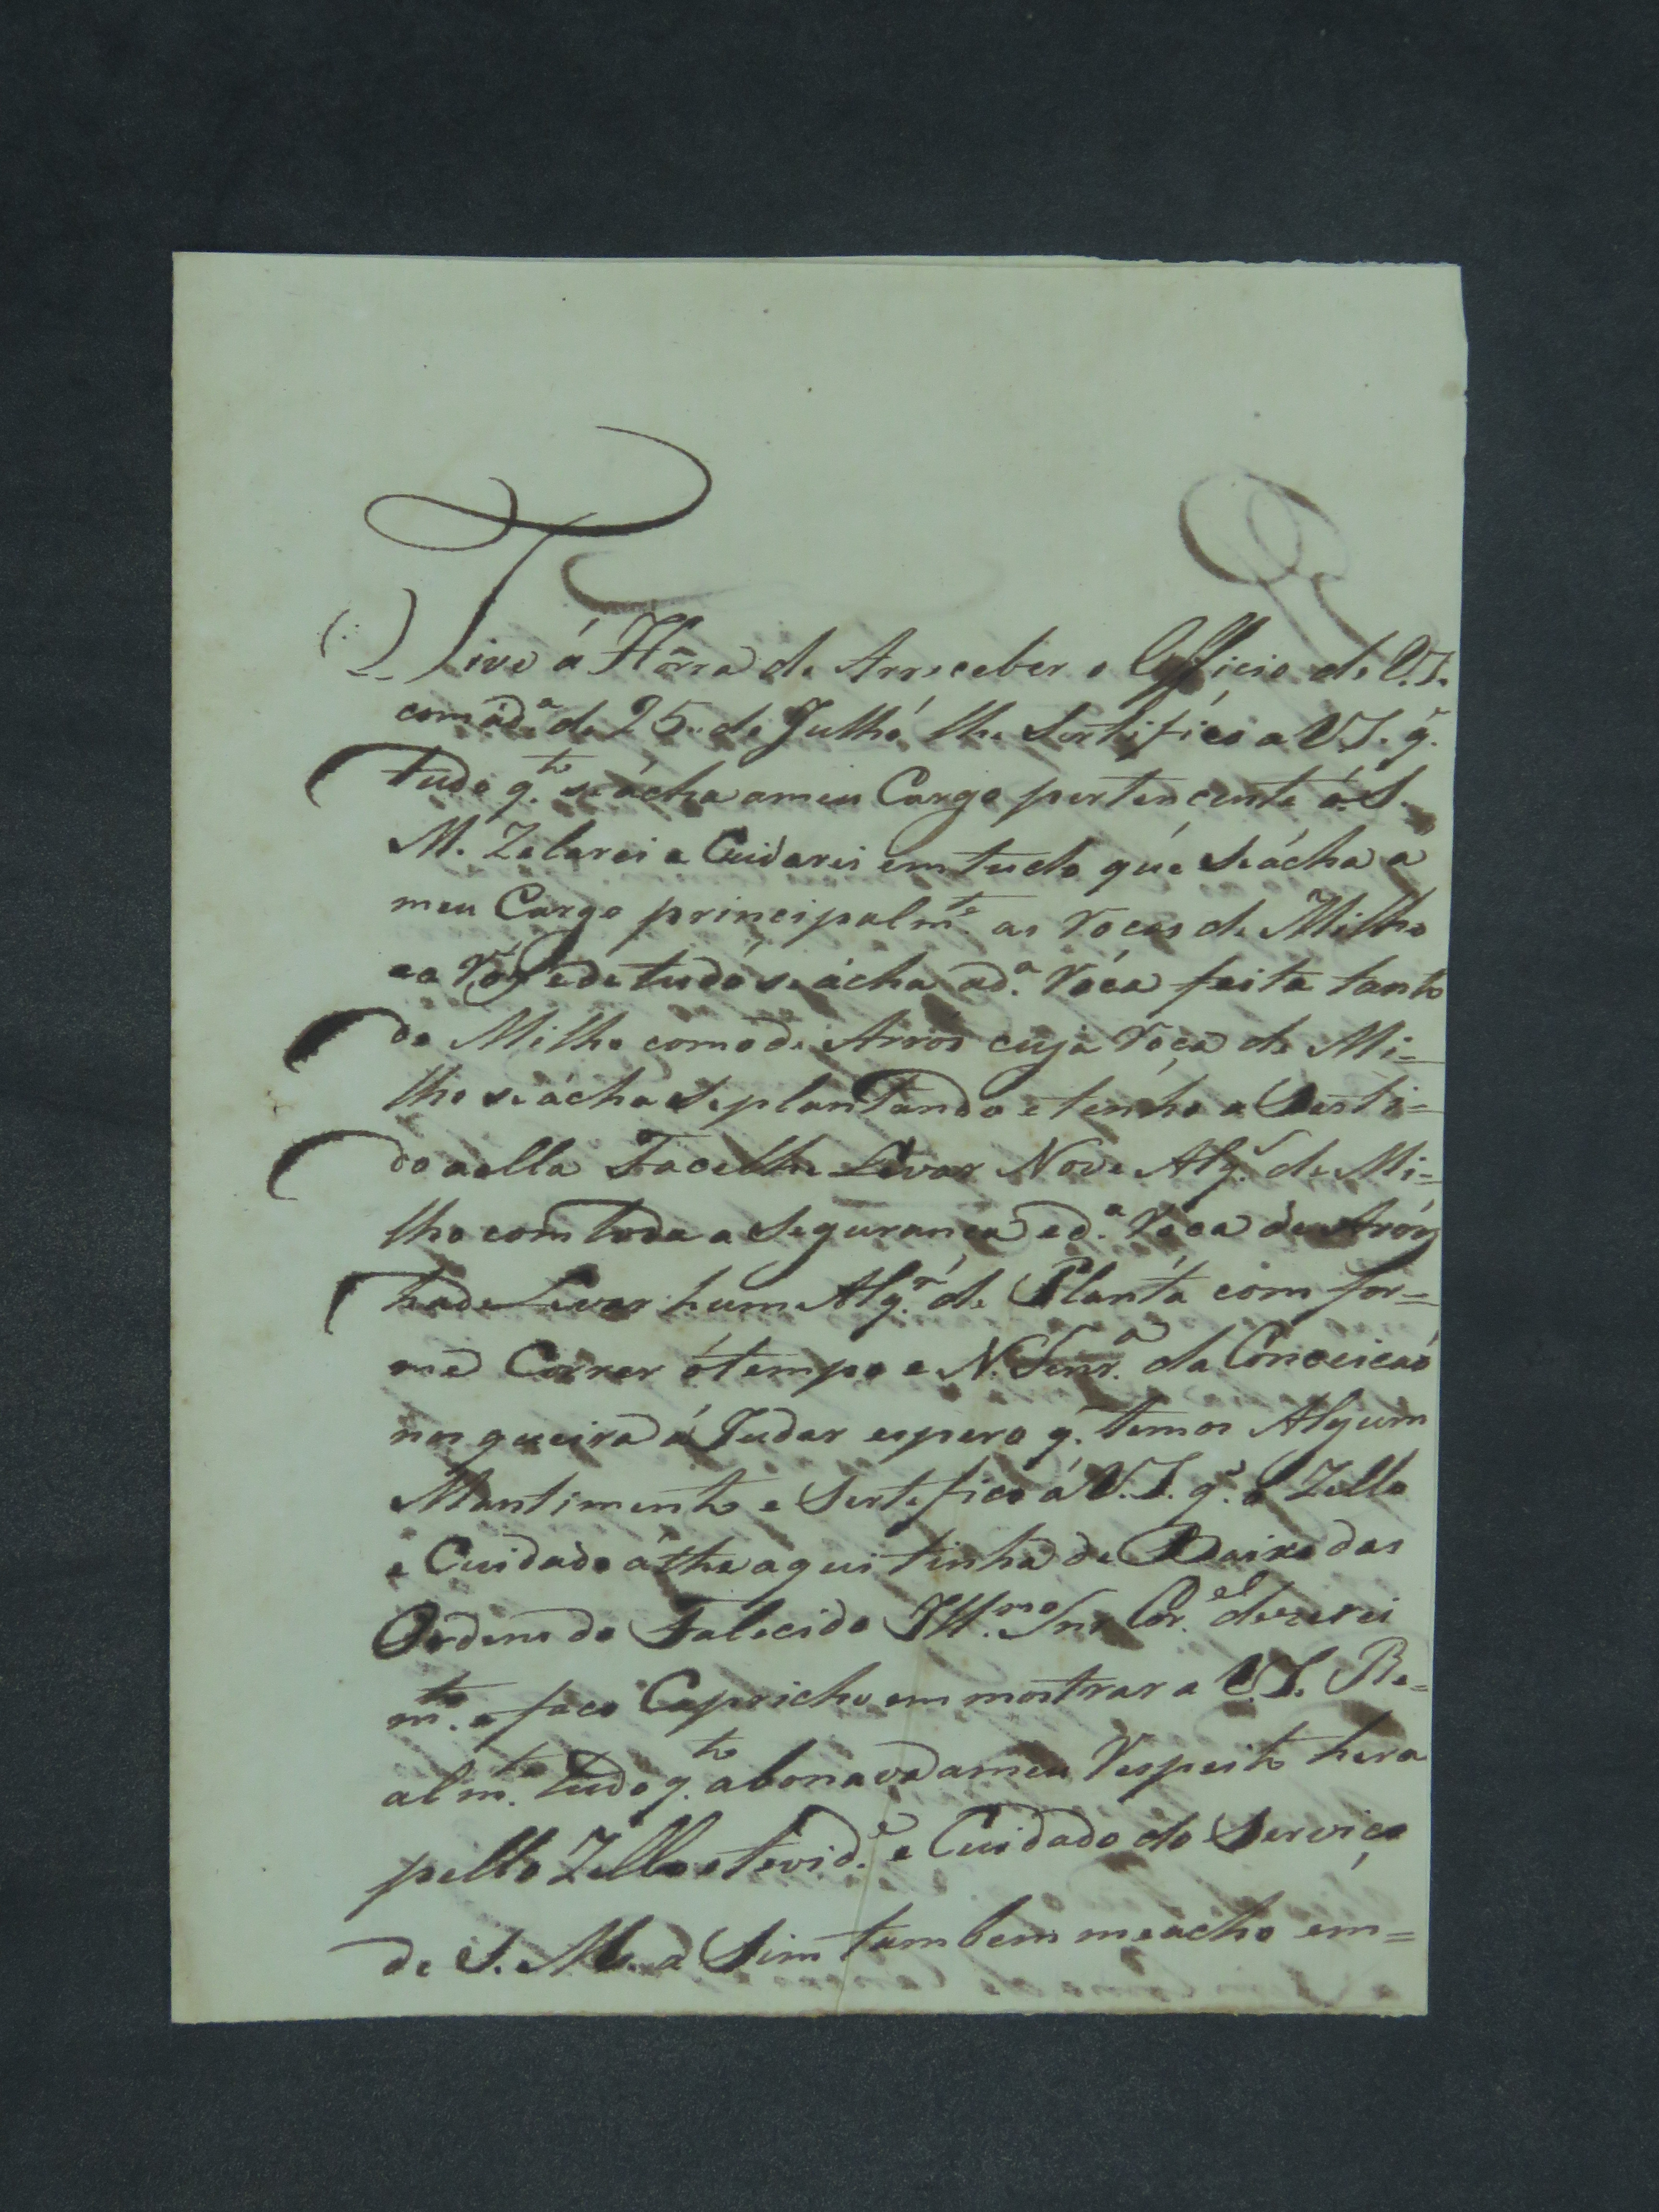 Tive á Hõrra de Arreceber o Officio de V.S.
com ad.ª de 25 de Julho, lhe Sertifico a V.S. q.
tudo q.to se ácha ameu Cargo pertencente á S.
M. Zelarei e Cuidarei em tudo que Se ácha a
meu Cargo principalm.te as Rocas de Milho
ea ede tudo se ácha ad.ª Róca feita tanto
de Milho como de Arros cuja Roça de Mi=
lho se ácha Se plantando e tenho o Senti=
do aella Facelhe Levar Nove Alq.r de Mi=
lho com toda a Seguranca ed.ª Róca de Aróz
hade Levar hum Alq.r de Planta com for=
me Correr ó tempo e N. Senr.ª da Conceicaó
nos queira á Judar espero q. temos Algum
Mantimento e Sertefico á V.S. q. o Zello
e Cuidado áthe aqui tinha de Baixo das
Ordens do Falecido Ill.mo Snr Cor.el dezerei
m.to e faco Capricho em mostrar a V.S. Re=
alm.te tudo q.to abonava ameu Respeito hera
pello Zello etevid.e e Cuidado do Serviço
de S. M. a Sim tambem meacho em=